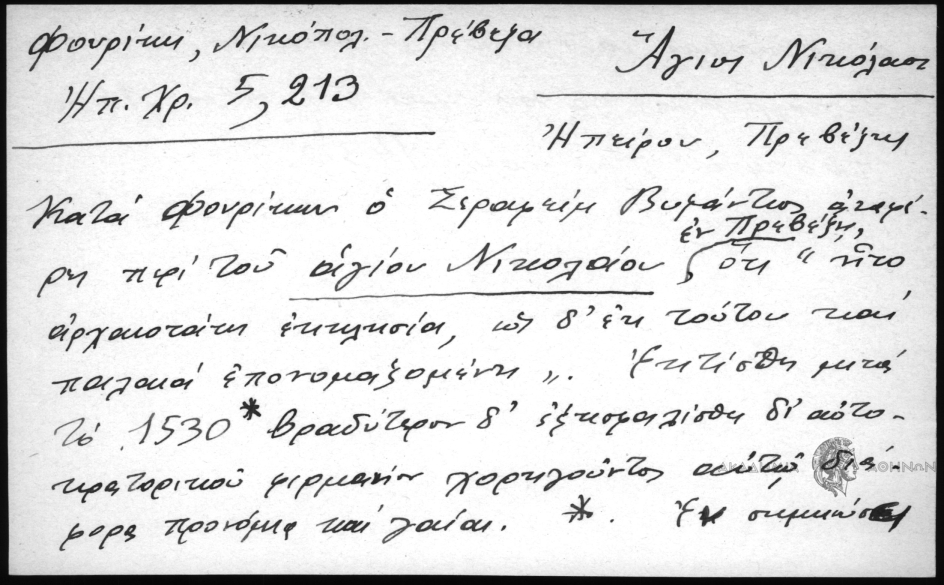 Φουρίκη, Νικόπολ. - Πρέβεζα
Ἠπ. Χρ. 5, 213
Ἅγιος Νικόλαος
Ἠπείρου, Πρεβέζης
Κατά Φουρίκην ὁ Σεραφείμ Βυζάντιος ἀναφέ-
ρει περί τοῦ ἁγίου Νικολάου ἐν Πρεβέζῃ, ὅτι "ἦτο
ἀρχαιοτάτη ἐκκλησία, ὡς δ' ἐκ τούτου καί
παλαιά ἐπονομαζομένη". Ἐκτίσθη μετά
τό 1530 * βραδύτερον δ' ἐξησφαλίσθη δι' αὐτο-
κρατορικοῦ φιρμανίου χορηγοῦντος αὐτῷ διά-
φορα προνόμια καί γαίας. *. Ἐν σημειώσει
ΑΚΑΔΗΜΙΑ ΑΘΗΝΩΝ